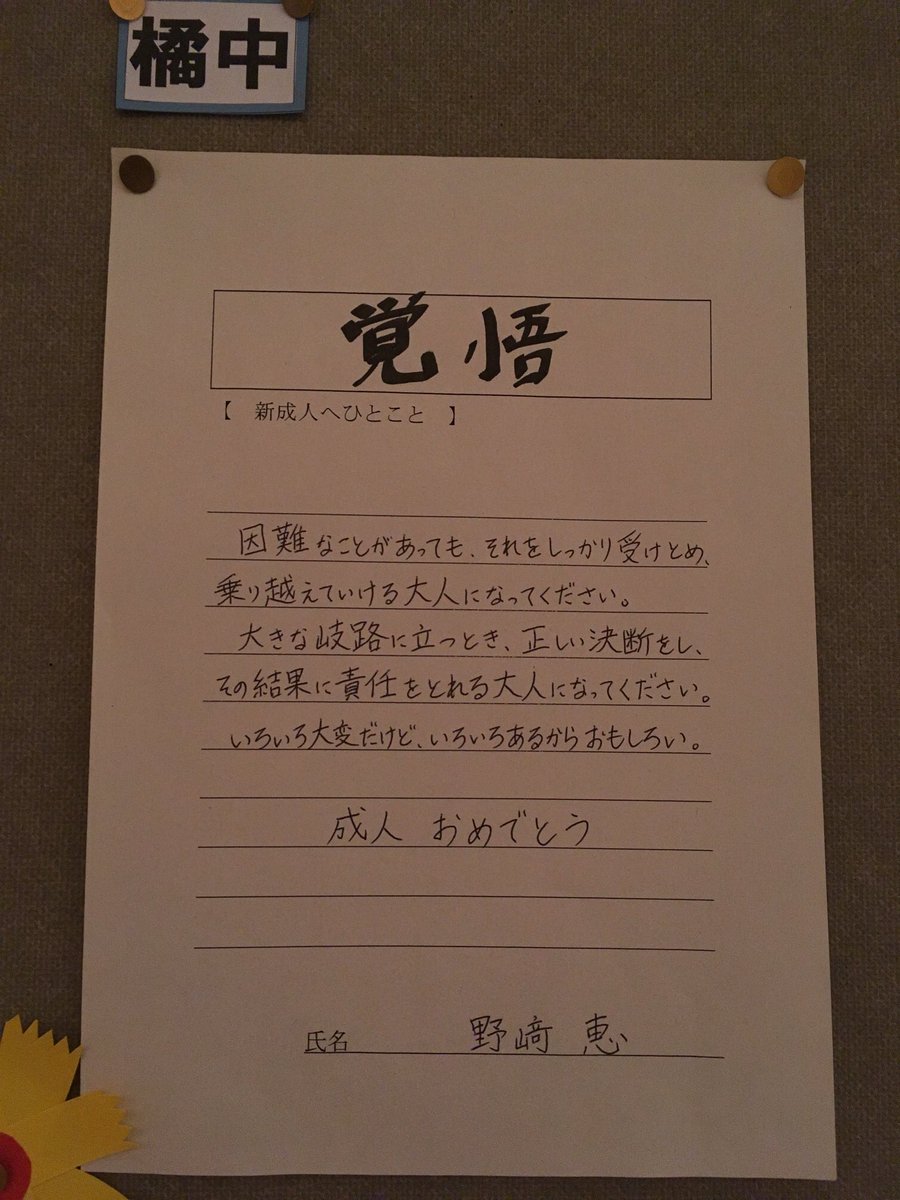 橘中
覚悟
【 新成人へひとこと 】
因難なことがあっても、それをしっかり受けとめ、
乗り越えていける大人になってください。
大きな岐路に立つとき、正しい決断をし、
その結果に責任をとれる大人になってください。
いろいろ大変だけど、いろいろあるからおもしろい。
成人 おめでとう
氏名 野﨑 恵